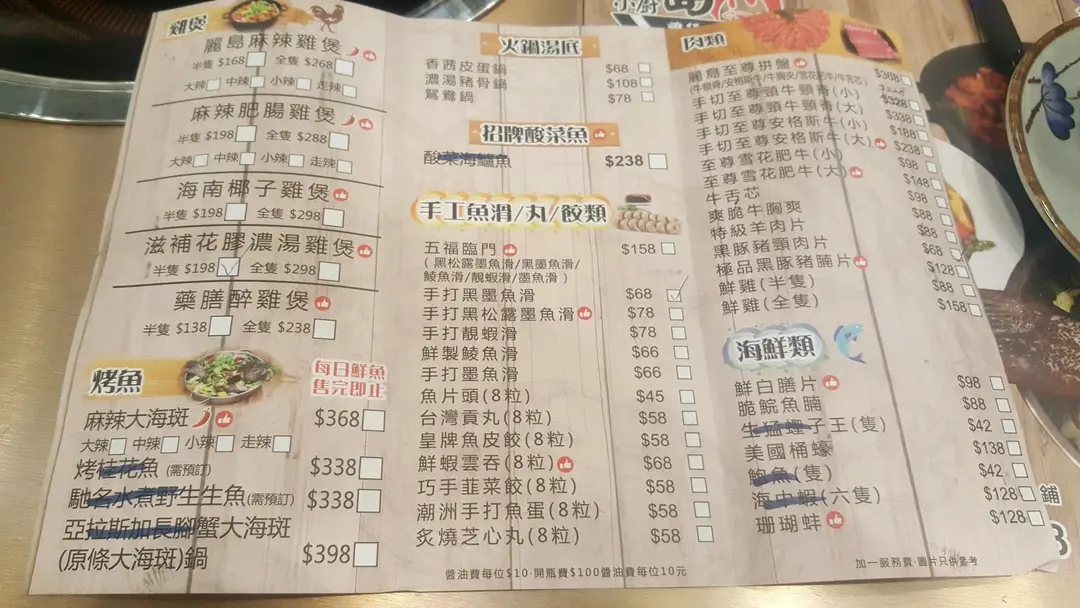 雞煲
麗島麻辣雞煲
半隻 $168 全隻 $268
大辣 中辣 小辣 走辣
麻辣肥腸雞煲
半隻 $198 全隻 $288
大辣 中辣 小辣 走辣
海南椰子雞煲
半隻 $198 全隻 $298
滋補花膠濃湯雞煲
半隻 $198 全隻 $298
藥膳醉雞煲
半隻 $138 全隻 $238
烤魚
每日鮮魚
售完即止
麻辣大海斑 $368
大辣 中辣 小辣 走辣
烤桂花魚 (需預訂) $338
馳名水煮野生生魚(需預訂) $338
亞拉斯加長腳蟹大海斑
(原條大海斑)鍋 $398
小廚
火鍋湯底
香茜皮蛋鍋 $68
濃湯豬骨鍋 $108
鴛鴦鍋 $78
招牌酸菜魚
酸菜海鱸魚 $238
手工魚滑/丸/餃類
五福臨門 $158
(黑松露墨魚滑/黑墨魚滑/
鯪魚滑/靚蝦滑/墨魚滑)
手打黑墨魚滑 $68
手打黑松露墨魚滑 $78
手打靚蝦滑 $78
鮮製鯪魚滑 $66
手打墨魚滑 $66
魚片頭(8粒) $45
台灣貢丸(8粒) $58
皇牌魚皮餃(8粒) $58
鮮蝦雲吞(8粒) $68
巧手韮菜餃(8粒) $58
潮洲手打魚蛋(8粒) $58
炙燒芝心丸(8粒) $58
醬油費每位$10·開瓶費$100醬油費每位10元
肉類
麗島至尊拼盤 $388
(牛頸脊/安格斯牛/牛胸爽/雪花肥牛/牛舌芯)
手切至尊頸牛頸脊(小) $328
手切至尊頸牛頸脊(大) $338
手切至尊安格斯牛(小) $188
手切至尊安格斯牛(大) $238
至尊雪花肥牛(小) $98
至尊雪花肥牛(大) $148
牛舌芯 $98
爽脆牛胸爽 $88
特級羊肉片 $88
黑豚豬頸肉片 $68
極品黑豚豬腩片 $128
鮮雞(半隻) $88
鮮雞(全隻) $158
海鮮類
鮮白膳片 $98
脆鯇魚腩 $88
生猛蟶子王(隻) $42
美國桶蠔 $138
鮑魚(隻) $42
海中蝦(六隻) $128
珊瑚蚌 $128
加一服務費·圖片只供參考
鋪